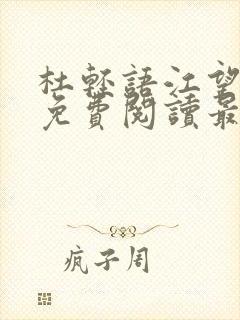 杜輕語江望
免費閱讀最
疯子周